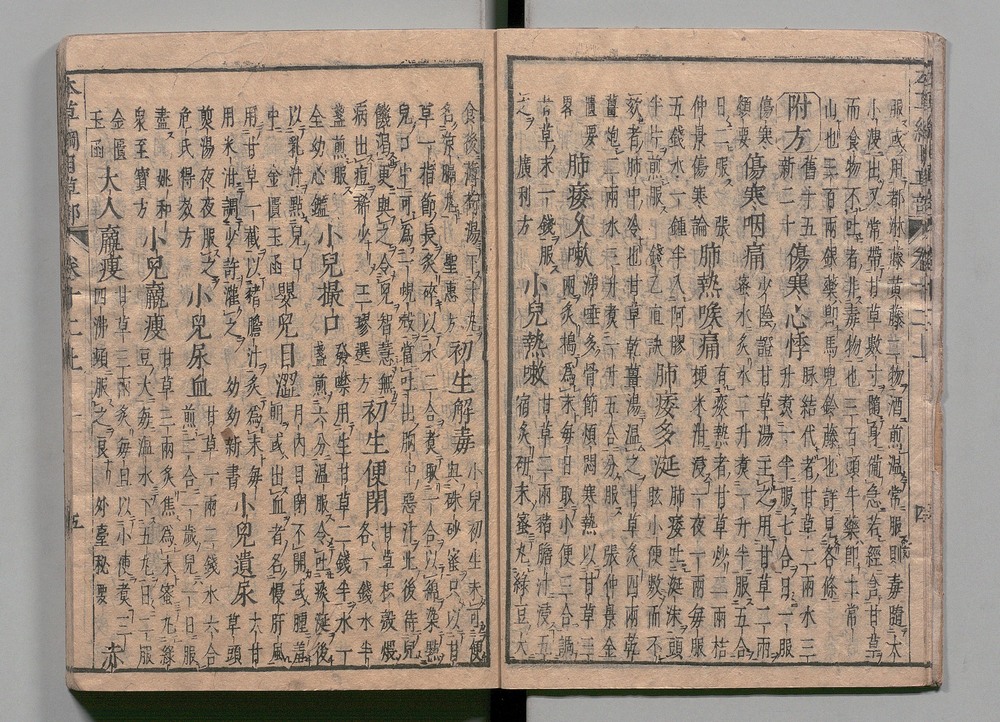 服或用都淋藤黄藤二物酒煎温常服則毒隨大
小溲出又常帶甘草數寸隨身備急若經含甘草
而食物不吐者非毒物也三百頭牛藥即土常
山也三百兩銀藥即馬兜鈴藤也詳見各條
附方舊十五新二十傷寒心悸脉結代者甘草二兩水三升煮一半服七合日一服
傷寒類要傷寒咽痛少陰證甘草湯主之用甘草二兩蜜水炙水二升煮一升半服五合
日二服張仲景傷寒論肺熱喉痛有痰熱者甘草炒二兩桔梗米泔浸一夜一兩每服
五錢水一鍾半入阿膠半片煎服錢乙直訣肺痿多涎肺痿吐涎沫頭眩小便數而不
欬者肺中冷也甘草乾薑湯温之甘草炙四兩乾薑炮二兩水三升煮一升五合分服張仲景金
匱要畧肺痿久嗽涕唾多骨節煩悶寒熱以甘草三兩炙搗為末每日取小便三合調
甘草末一錢服之廣利方小兒熱嗽甘草二兩猪膽汁浸五宿炙研末蜜丸綠豆大
食後薄荷湯下十丸名凉膈丸聖惠方初生解毒小兒初生未可便與硃砂蜜只以甘
草一指節長炙碎以水二合煮取一合以綿染點兒口中可為一蜆殻當吐出胸中惡汁此後待兒
饑渴更與之令兒智慧無病出痘稀少王璆選方初生便閉甘草枳殻煨各一錢水半
盞煎服全幼心鑑小兒撮口發噤用生甘草二錢半水一盞煎六分温服令吐痰涎後
以乳汁點兒口中金匱玉函嬰兒目澀月內目閉不開或腫羞明或出血者名慢肝風
用甘草一截以猪膽汁炙為末每用米泔調少許灌之幼幼新書小兒遺尿大甘草頭
煎湯夜夜服之危氏得效方小兒尿血甘草一兩二錢水六合煎二合一歲兒一日服
盡姚和衆至寶方小兒羸瘦甘草二兩炙焦為末蜜丸綠豆大每温水下五丸日二服
金匱玉函大人羸瘦甘草三兩炙每旦以小便煮三四沸頓服之良外臺秘要